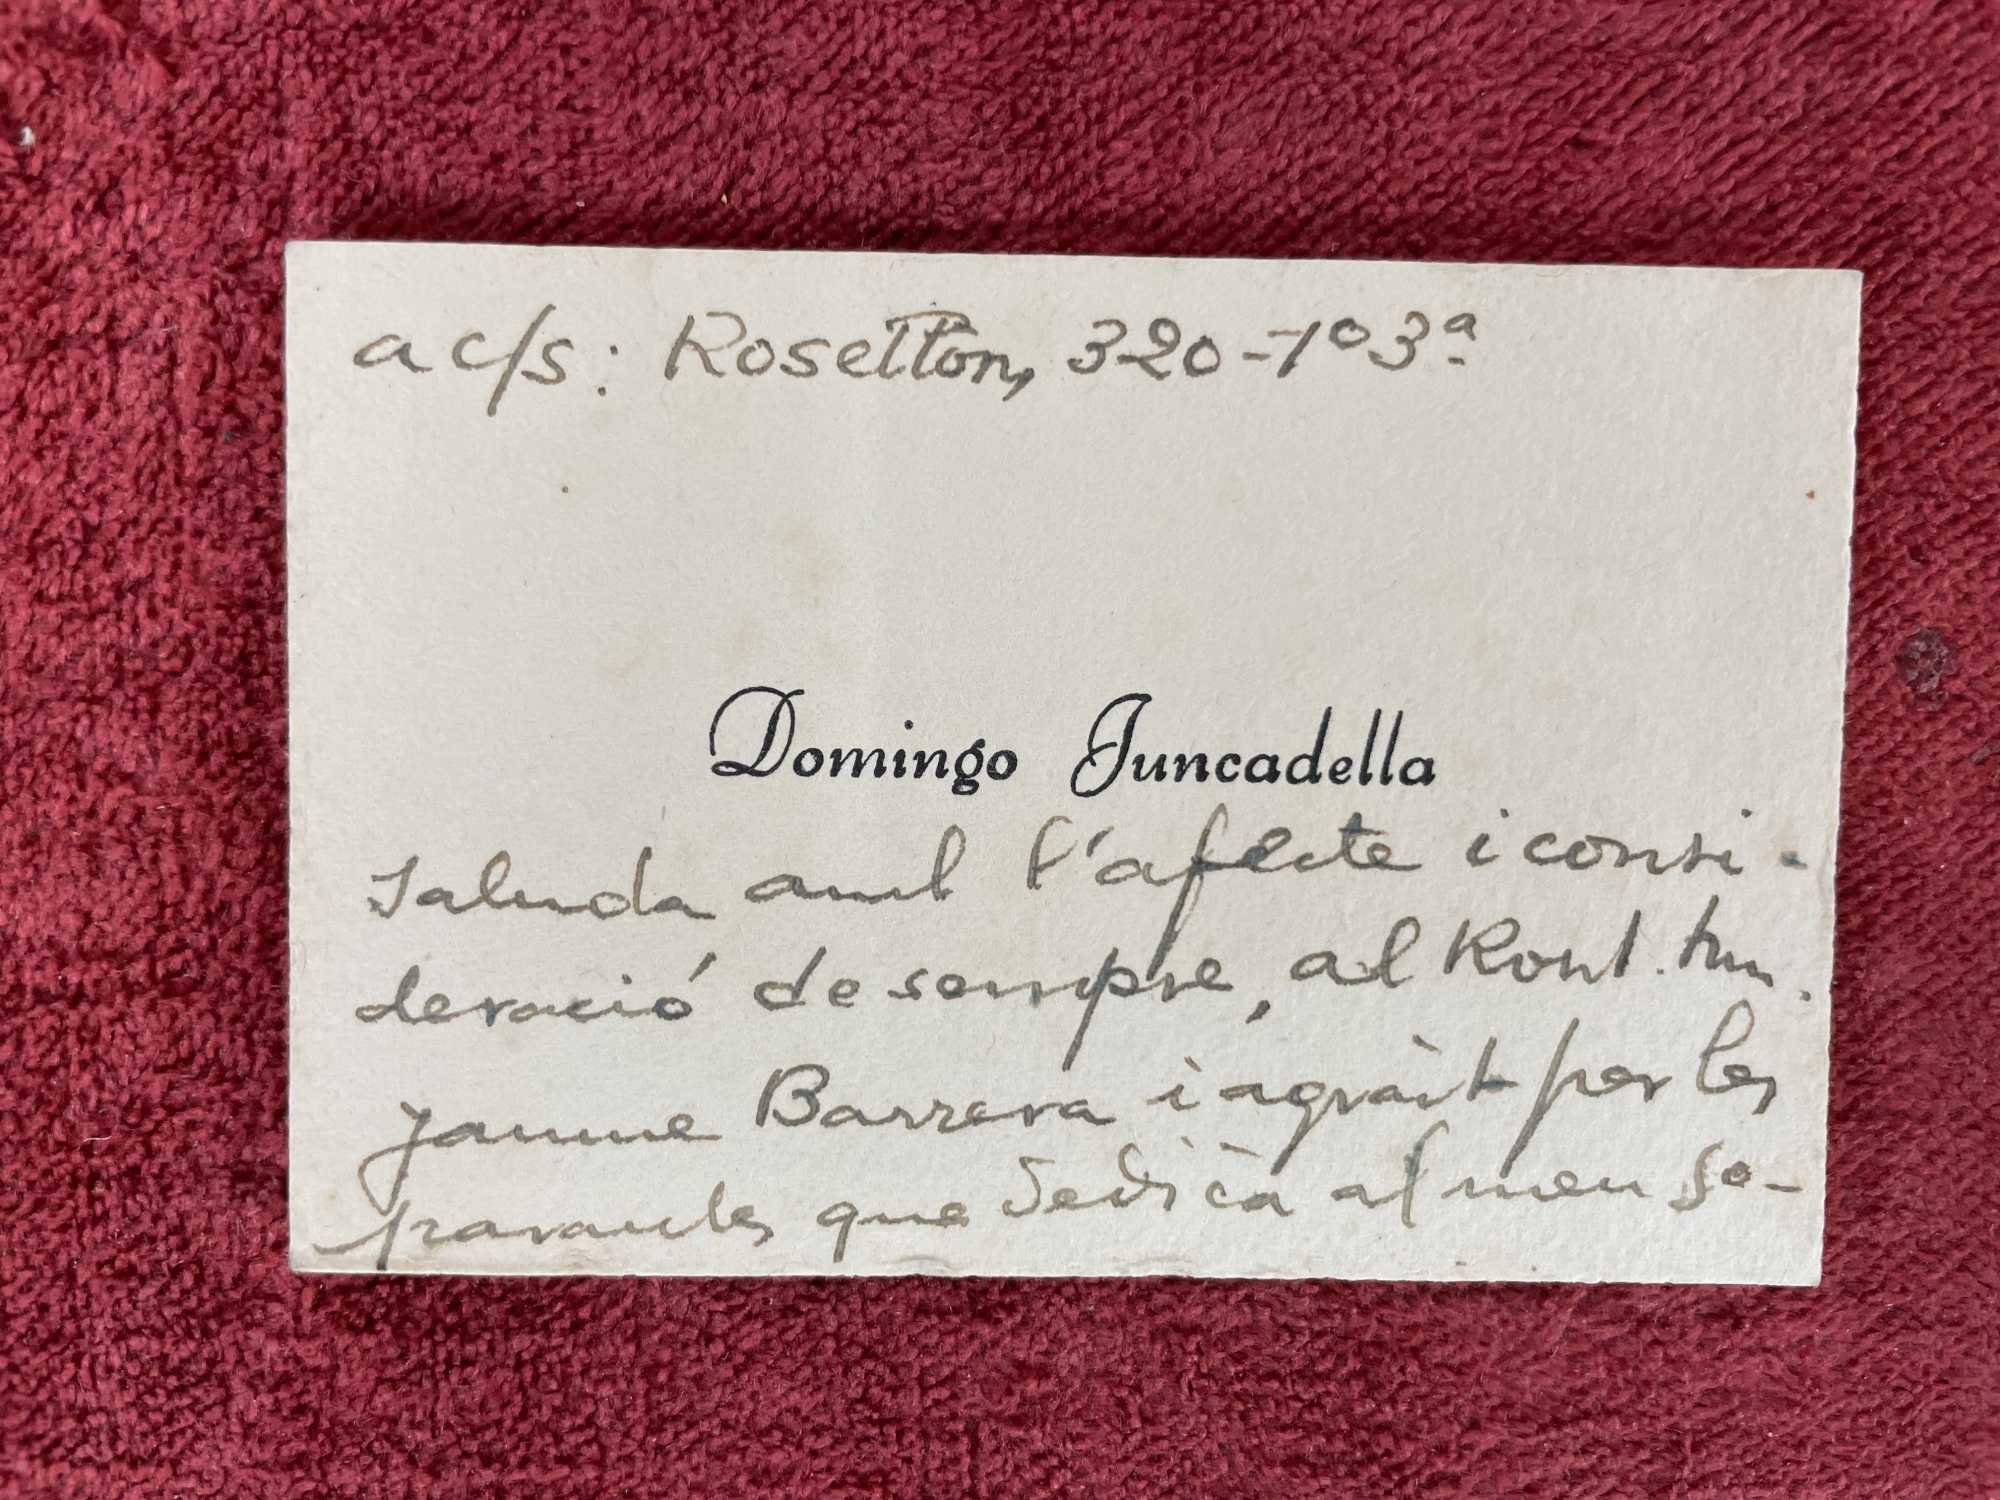 a c/s: Rosellón, 320-1º 3ª
Domingo Juncadella
Saluda amb l'afecte i consi-
deració de sempre, al
Jaume Barrera i agraït per les
paraules que dedicà al meu so-